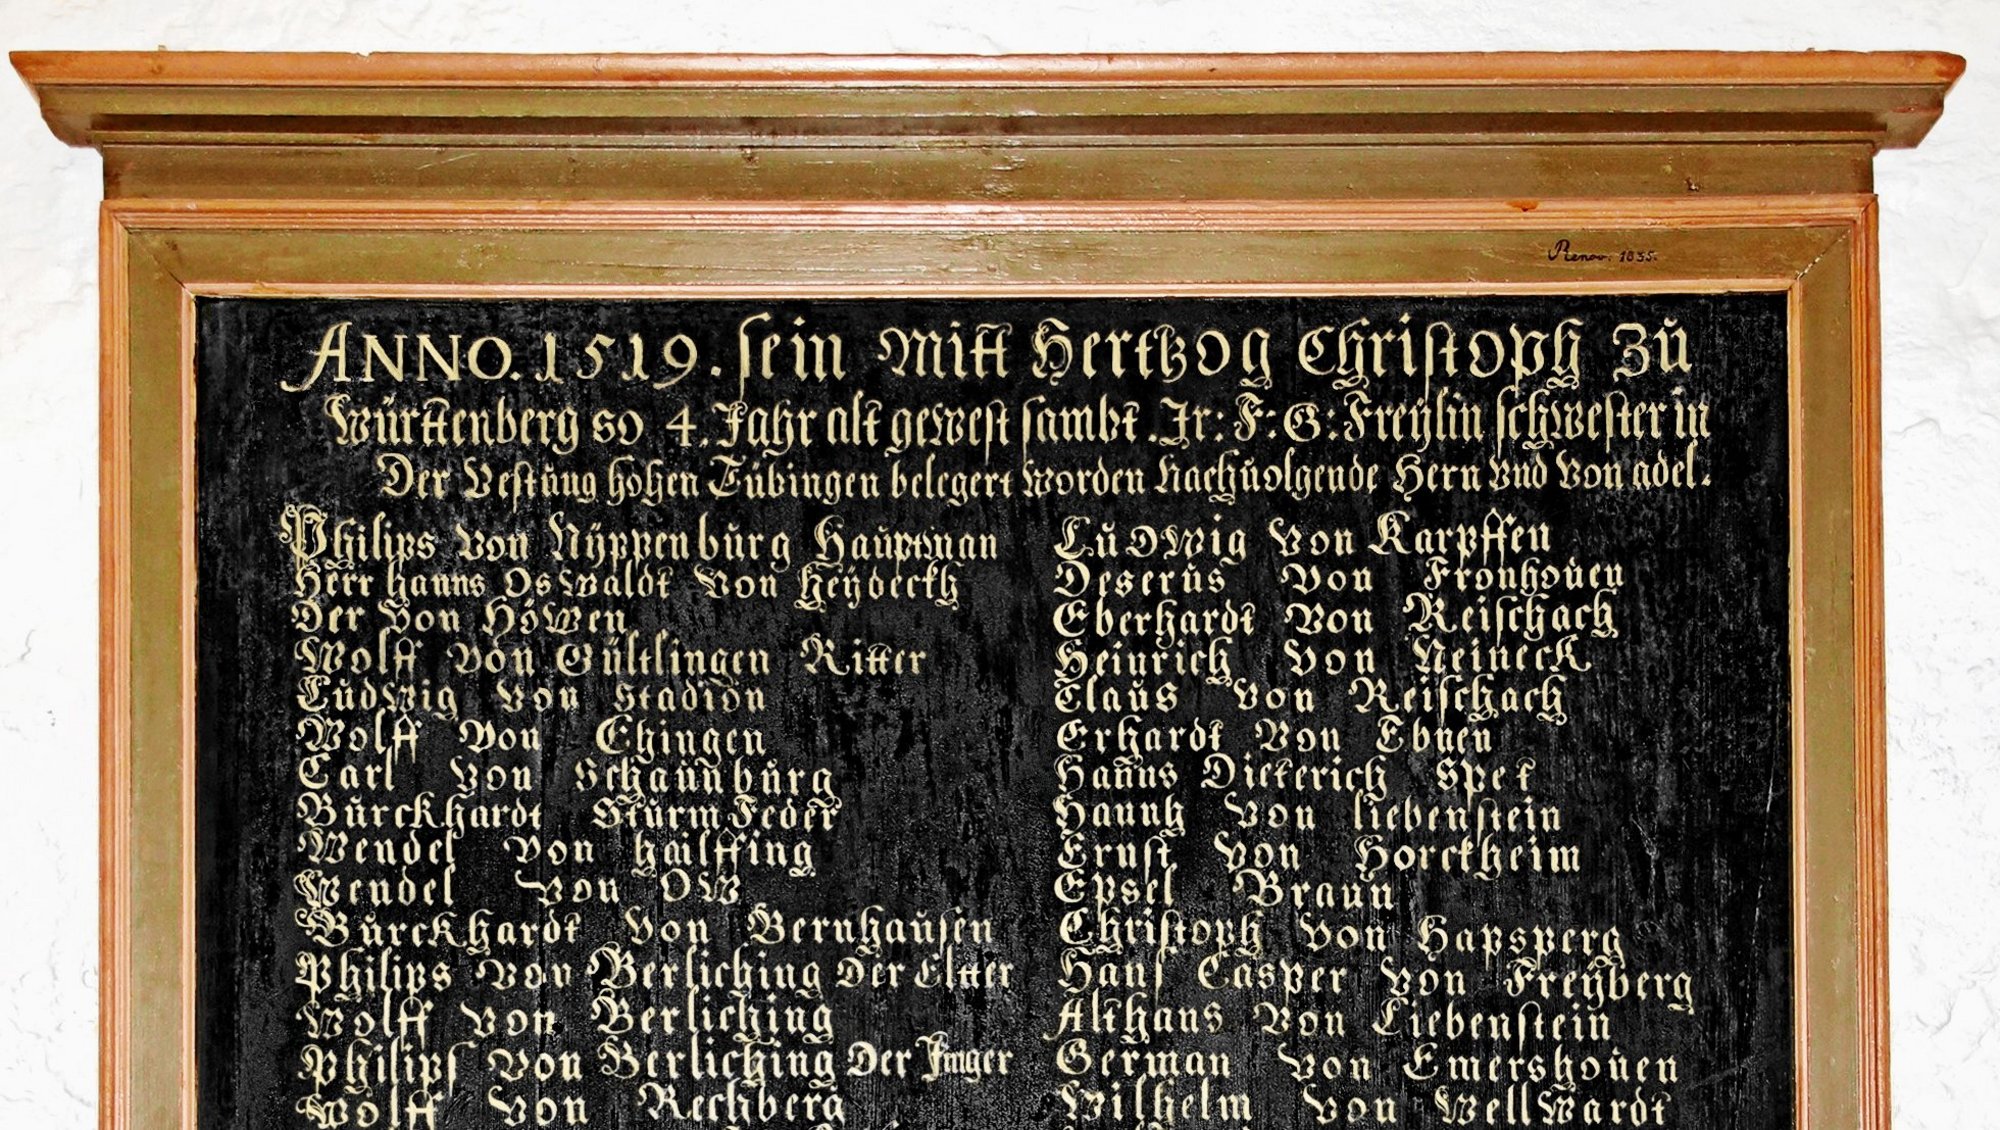 Renov. 1835.
ANNO. 1519. sein Mitt Hertzog Christoph Zů
Württenberg so 4. Jahr alt gewest sambt. Ir: F: G: Freÿlin schwester in
Der Vestůng hohen Tübingen belegert worden Nachůolgende Hern vnd Von adel.
Philips Von Nÿppenbůrg Haůptman
Herr Hanns Oswaldt Von Heÿdeckh
Der Von Höwen
Wolff Von Gültlingen Ritter
Lůdwig Von Stadion
Wolff Von Ehingen
Carl Von Schaůnbůrg
Bůrckhardt Stůrmfeder
Wendel Von Hailffing
Wendel Von OW
Bůrckhardt Von Bernhaůsen
Philips Von Berliching Der Eltter
Wolff Von Berliching
Philips Von Berliching Der Jinger
Wolff Von Rechberg
Lůdwig Von Karpffen
Deserůs Von Fronhoůen
Eberhardt Von Reischach
Heinrich Von Neineck
Claůs Von Reischach
Erhardt Von Ebnen
Hanns Dietterich Spet
Hannß Von Liebenstein
Ernst Von Horckheim
Epsel Braůn
Christoph Von Hapsperg
Hans Casper Von Freÿberg
Althans Von Liebenstein
German Von Emershoůen
Wilhelm Von Wellwardt